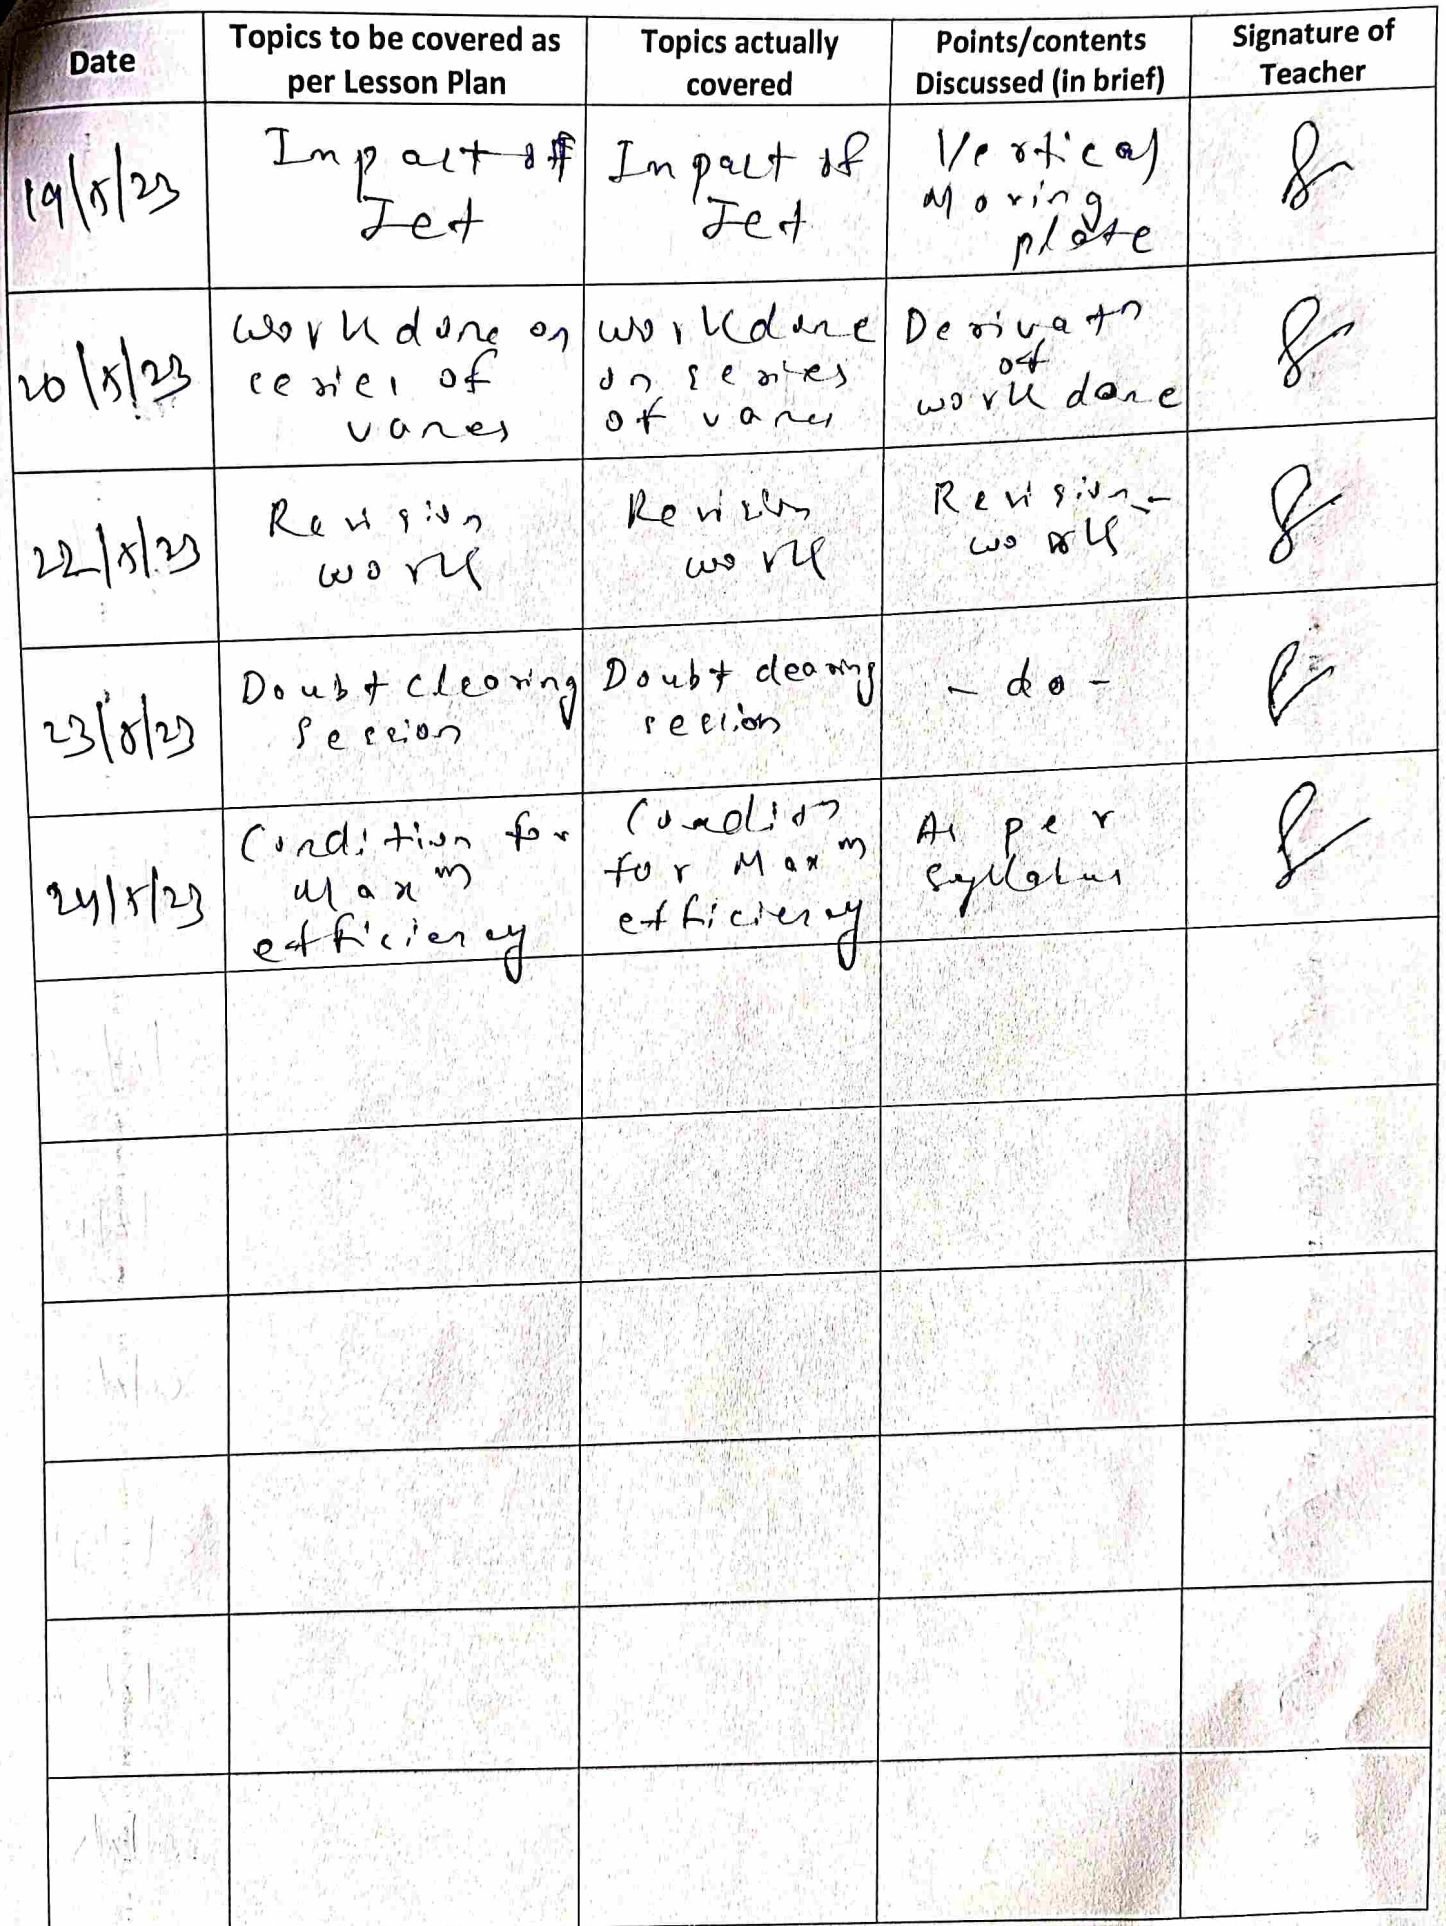 Date
Topics to be covered as
per Lesson Plan
Topics actually
covered
Points/contents
Discussed (in brief)
Signature of
Teacher
19/5/23
Impact of
Jet
Impact of
Jet
Vertical
Moving
plate
20/5/23
workdone on
series of
vanes
workdone
on series
of vanes
Derivatn
of
workdone
22/5/23
Revision
work
Revision
work
Revision
work
23/5/23
Doubt clearing
session
Doubt clearing
session
- do -
24/5/23
Condition for
Maxm
efficiency
for Maxm
efficiency
As per
syllabus